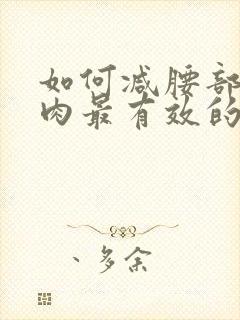 如何减腰部
肉最有效的
、多余